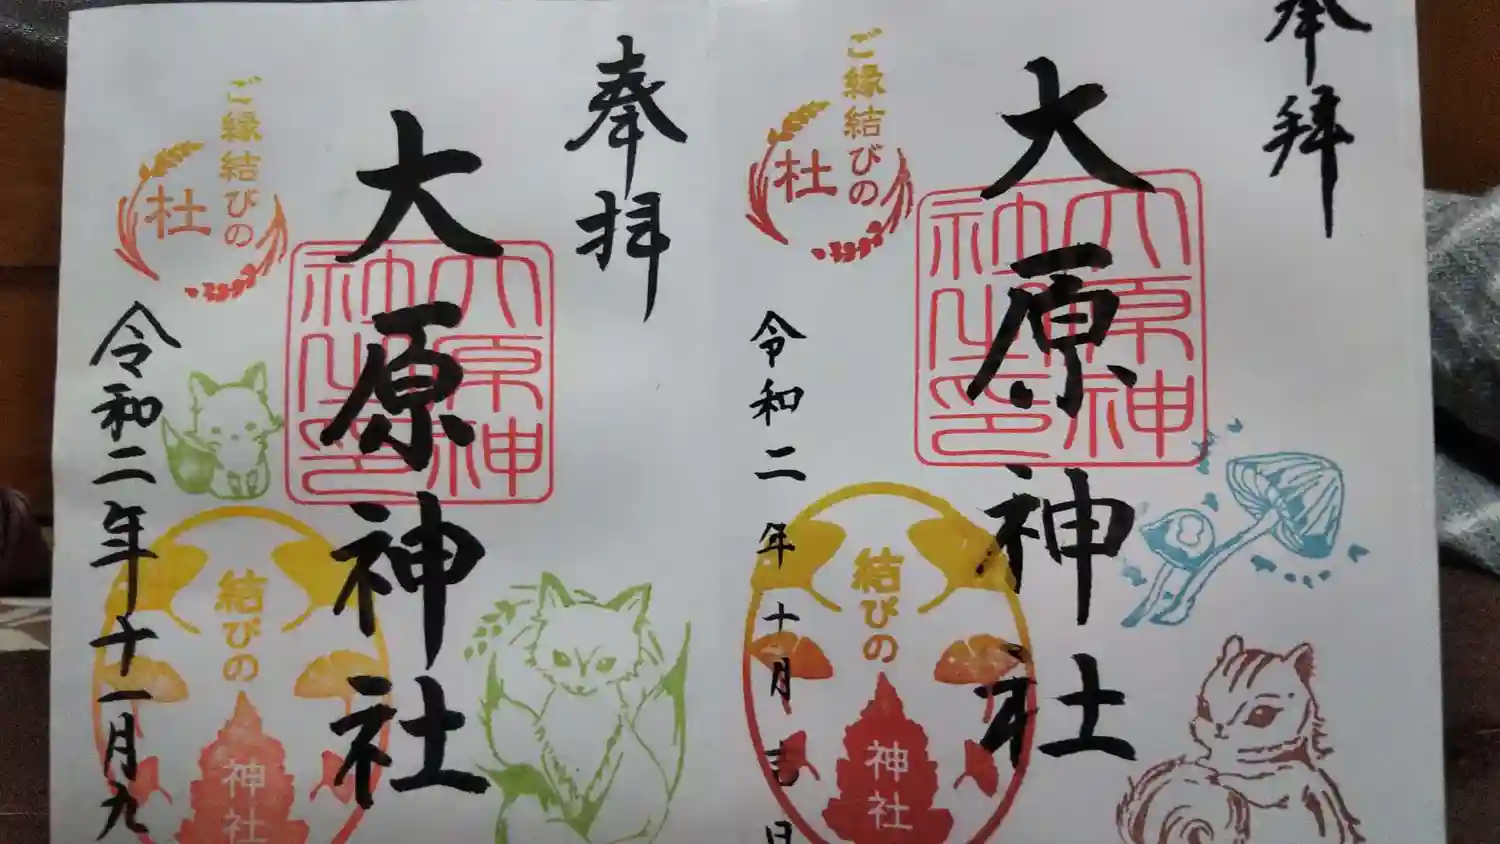 奉拝
大原神社
大原神社之印
ご縁結びの
杜
結びの
神社
令和二年十月吉日
奉拝
大原神社
大原神社之印
ご縁結びの
杜
結びの
神社
令和二年十一月九